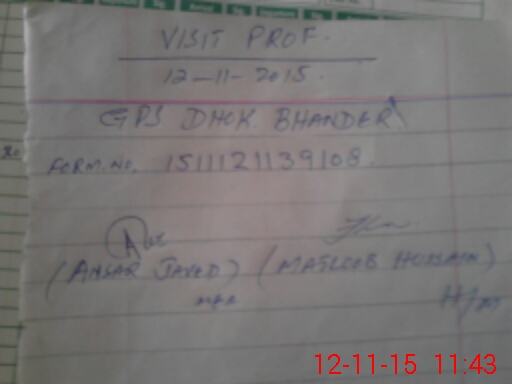 VISIT PROF.
12-11-2015.
GPS DHOK BHANDER
FORM.NO. 1511121139108.
(ANSAR JAVED) (MATLOOB HUSSAIN)
H/M
12-11-15 11:43